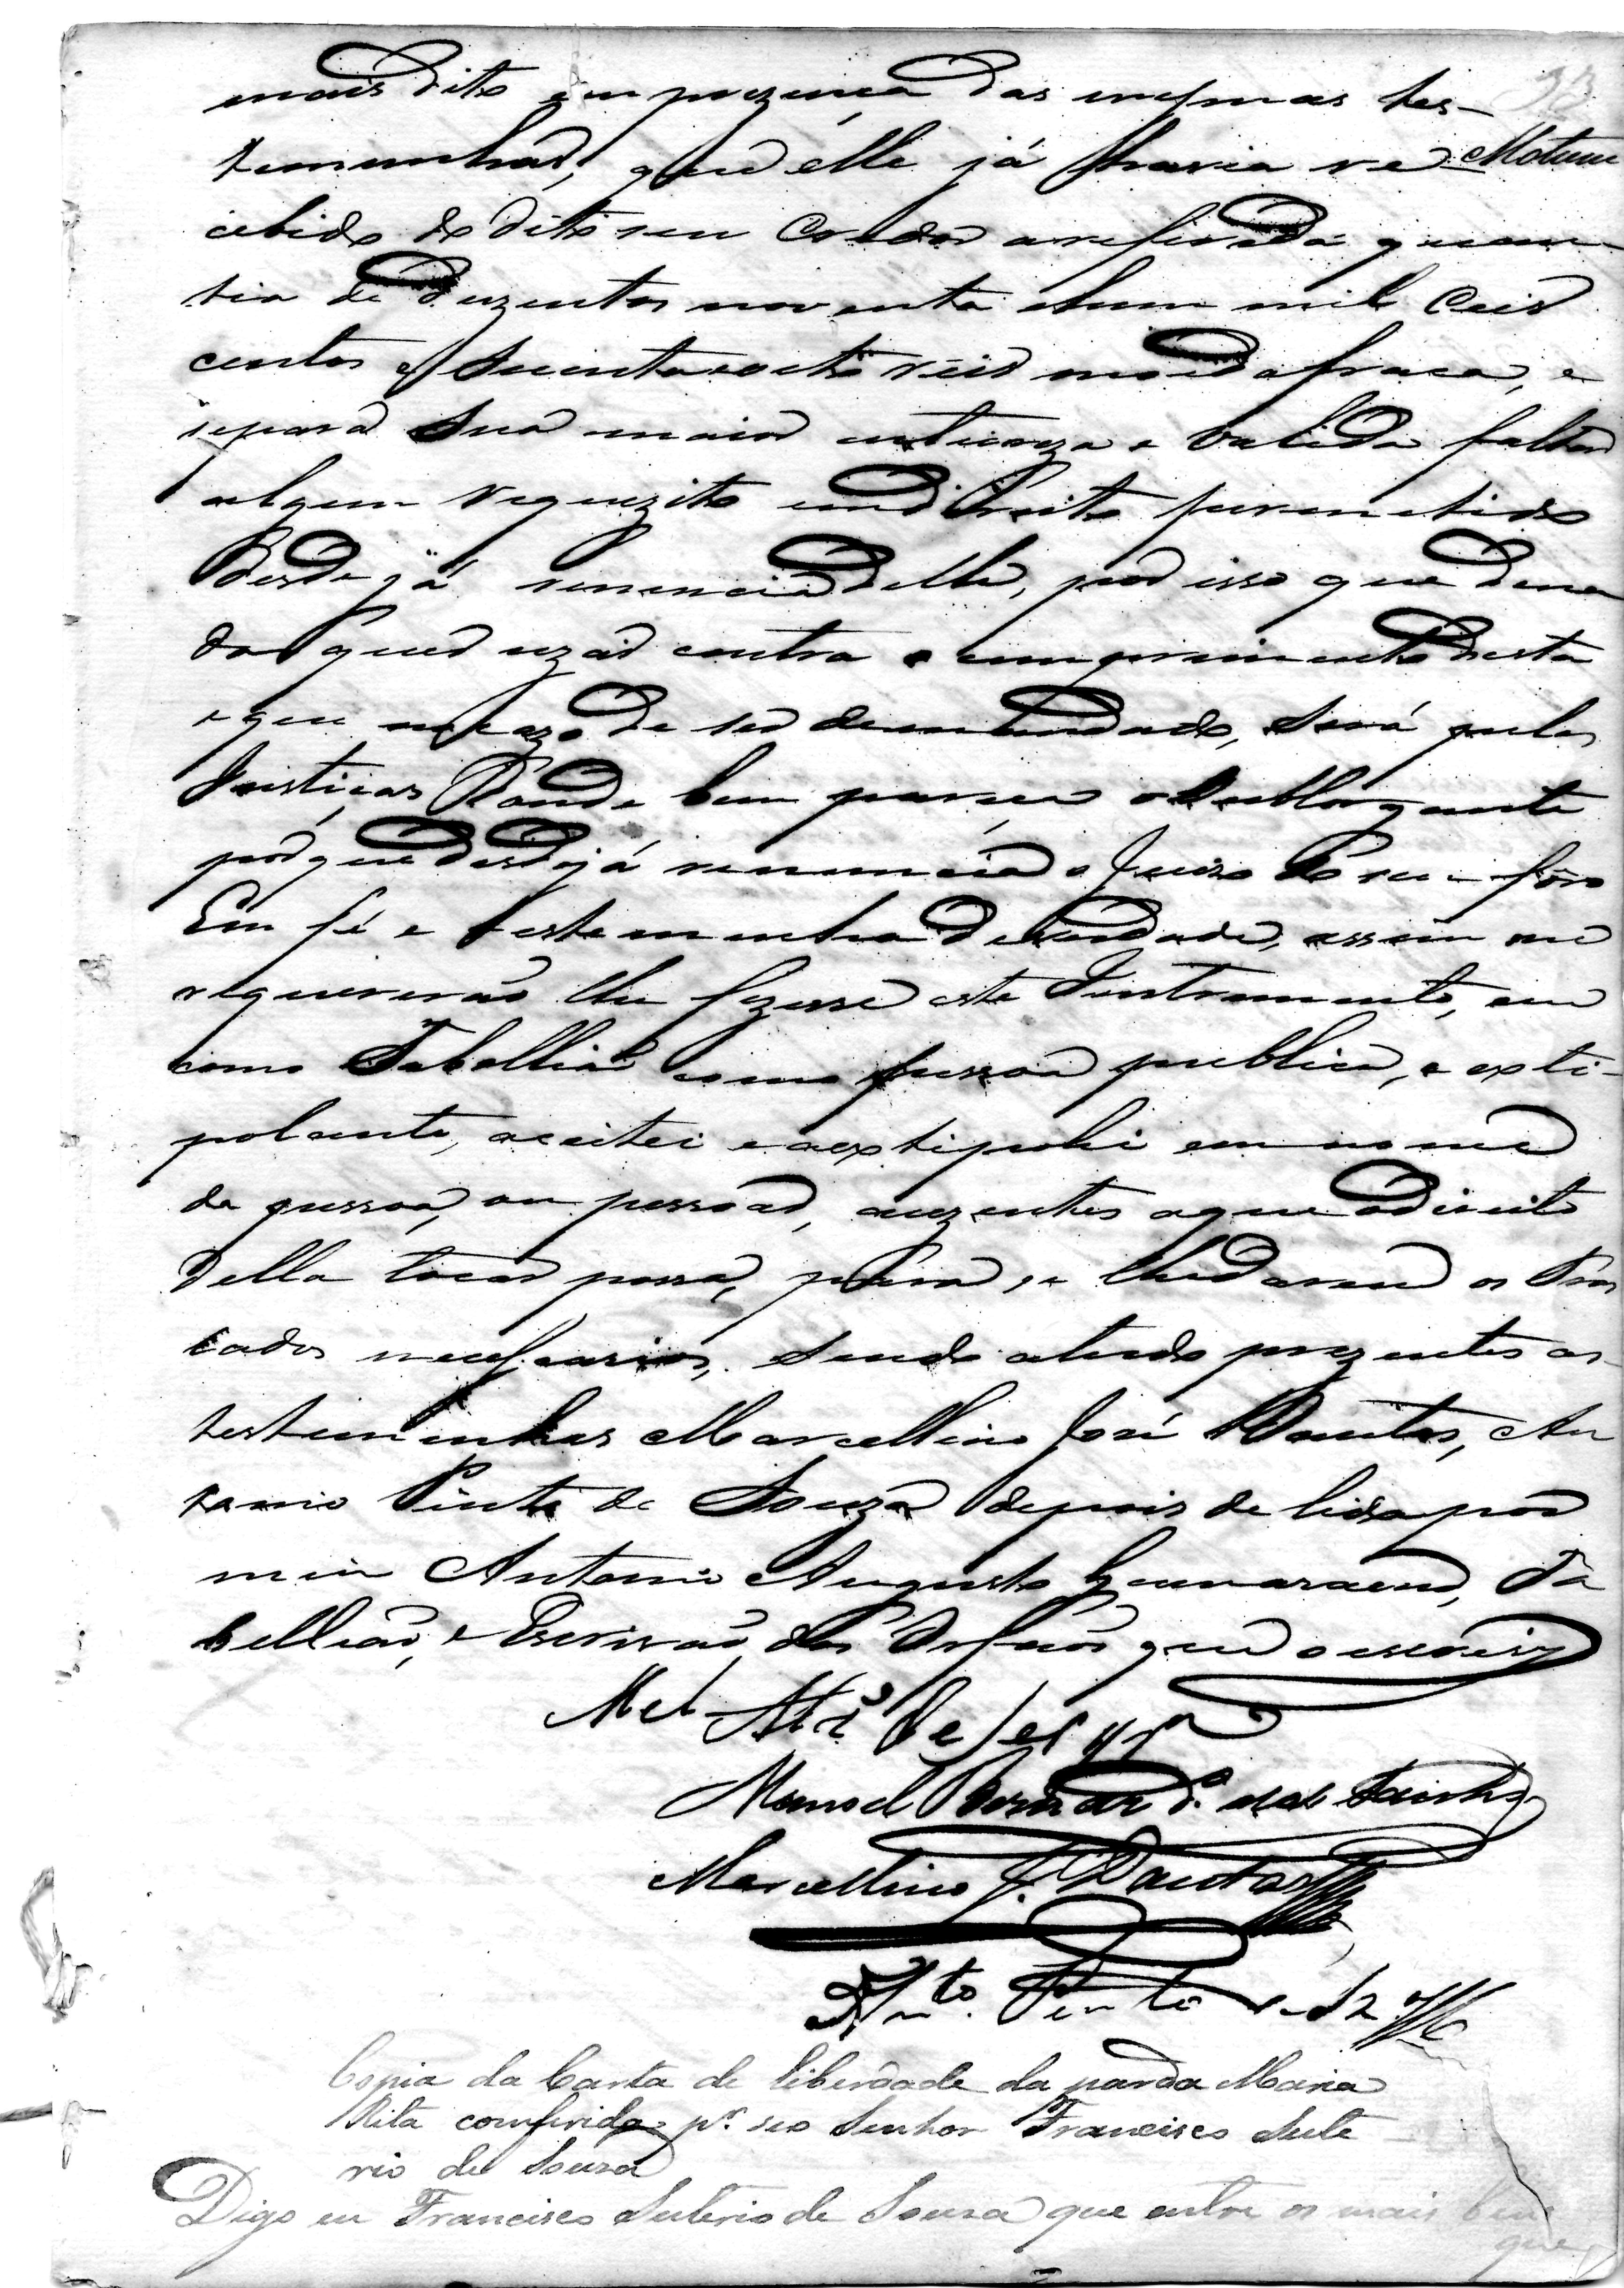 33
mais dito em prezença das mesmas tes-
temunhas, que elle já havia re-
Motum
cebido do dito seu Credor a referida quan
tia de duzentos noventa e hum mil Ceis
centos e secenta e oito reis moeda fraca, e
separa sua maior inteireza e valida faltar
algum requezito em direito
Desde já renuncia delle, por isso que
que uzar contra o cumprimento desta
e que no cazo de ser demandado, será pelas
Justiças d'onde bem pareça o outhorgante
por que desde já renuncia o Juizo do seu fôro
Em fé e testemunha de verdade, assim me
requererão lhe fizesse este Instromento, eu
como Tabellião como pessoa publica, e exti-
polante, aceitei e a extipulei em nome
da pessoa, ou pessoas, auzentes a que o direito
della tocar possa, para se lhe darem os tras
lados necessarios, sendo a tudo prezentes as
testemunhas Marcellino José Dantas, An
tonio Pinto de Souza depois de lida por
mim Antonio Augusto Guimaraens, Ta
bellião, e Escrivão dos Orfaõs que o escrevy
Mel
Manoel Bernardo. dos Santos
Marcellino J. Dantas
Anto. Pinto de Sza
Copia da Carta de liberdade da parda Maria
Rita conferida pr. seo Senhor Francisco Sute
rio de Souza
Digo eu Francisco Suterio de Souza que entre os mais bens
que